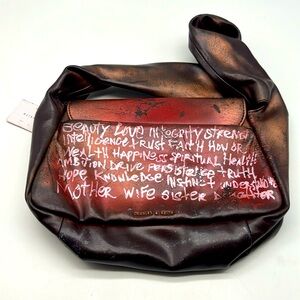 BEAUTY LOVE INTEGRITY STRENGTH
INTELLIGENCE TRUST FAITH HONOR
WEALTH HAPPINESS SPIRITUAL HEALTH
AMBITION DRIVE PERSISTENCE TRUTH
HOPE KNOWLEDGE INSTINCT UNDERSTANDING
MOTHER WIFE SISTER DAUGHTER
CHARLES & KEITH